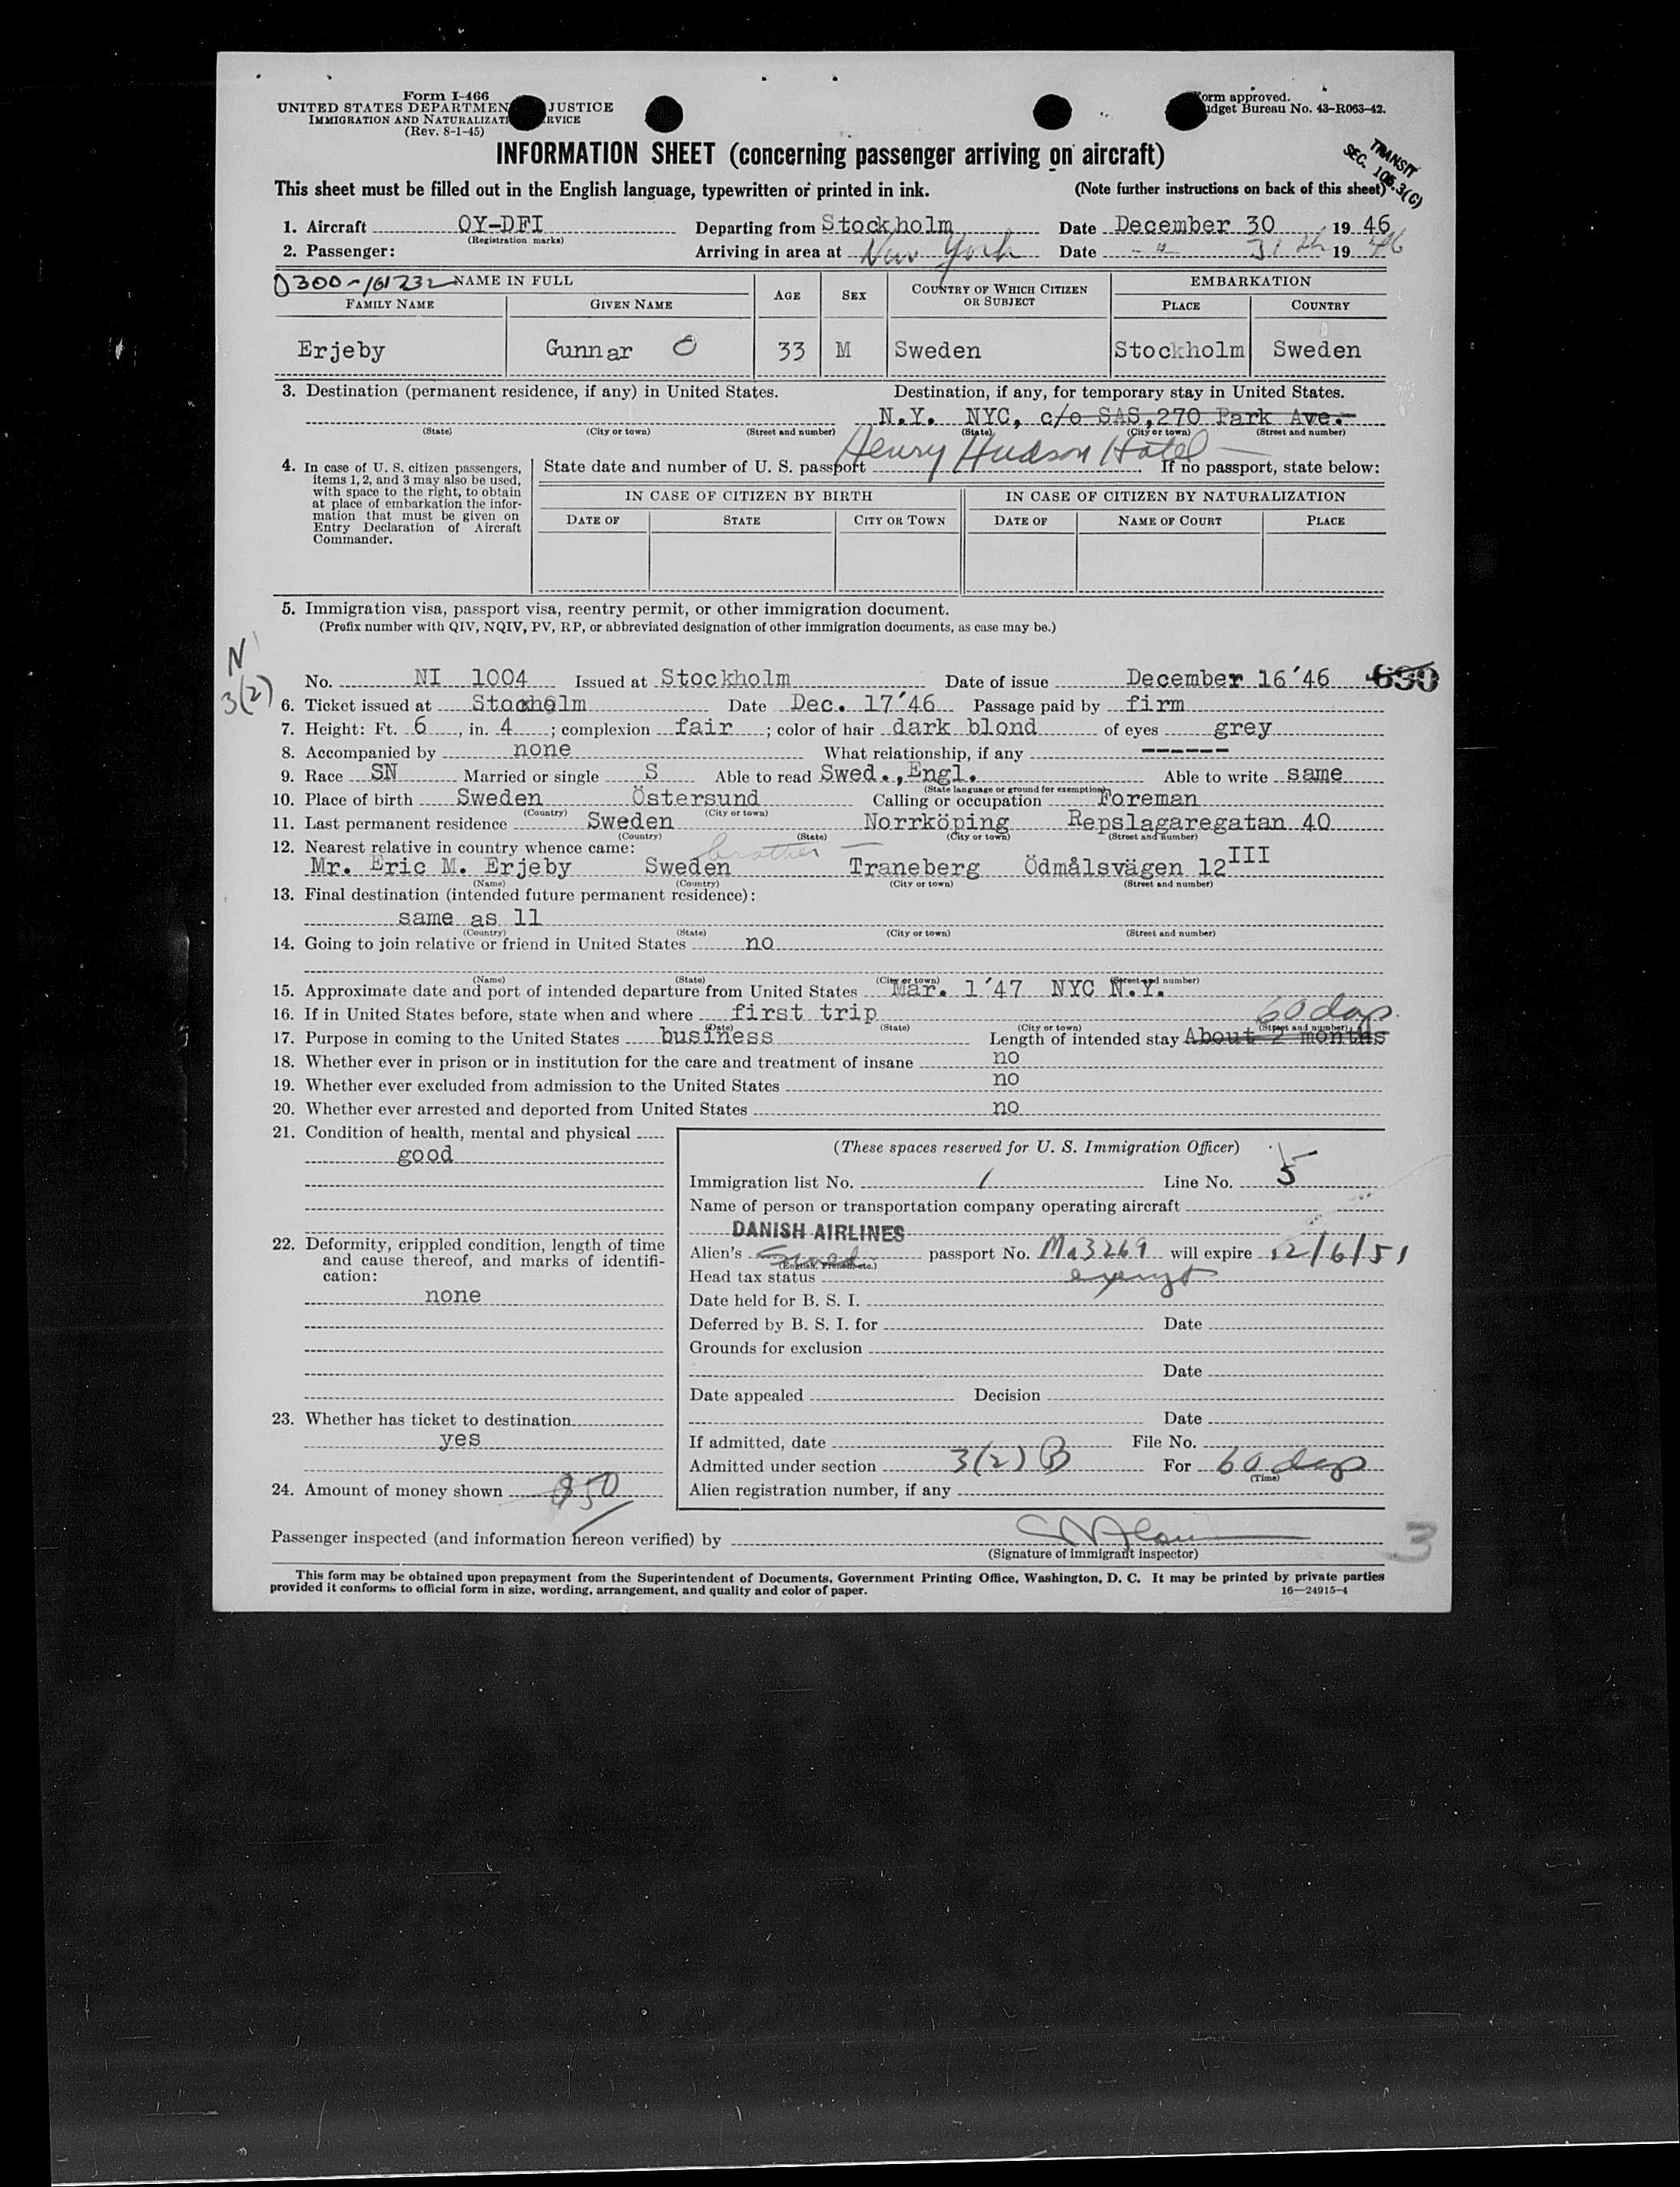 Form I-466
UNITED STATES DEPARTMEN JUSTICE
IMMIGRATION AND NATURALIZATI RVICE
(Rev. 8-1-45)
orm approved.
dget Bureau No. 43-R063-42.
TRANSIT
SEC. 105.3(C)
INFORMATION SHEET (concerning passenger arriving on aircraft)
This sheet must be filled out in the English language, typewritten or printed in ink. (Note further instructions on back of this sheet)
1. Aircraft OY-DFI Departing from Stockholm Date December 30 1946
(Registration marks)
2. Passenger: Arriving in area at New York Date - " - 31 1946
0300-161232 NAME IN FULL AGE SEX COUNTRY OF WHICH CITIZEN OR SUBJECT EMBARKATION
FAMILY NAME GIVEN NAME PLACE COUNTRY
Erjeby Gunnar O 33 M Sweden Stockholm Sweden
3. Destination (permanent residence, if any) in United States. Destination, if any, for temporary stay in United States.
N.Y. NYC, c/o SAS, 270 Park Ave.
(State) (City or town) (Street and number) (State) (City or town) (Street and number)
Henry Hudson Hotel
4. In case of U. S. citizen passengers, items 1, 2, and 3 may also be used, with space to the right, to obtain at place of embarkation the information that must be given on Entry Declaration of Aircraft Commander.
State date and number of U. S. passport If no passport, state below:
IN CASE OF CITIZEN BY BIRTH IN CASE OF CITIZEN BY NATURALIZATION
DATE OF STATE CITY OR TOWN DATE OF NAME OF COURT PLACE
5. Immigration visa, passport visa, reentry permit, or other immigration document.
(Prefix number with QIV, NQIV, PV, RP, or abbreviated designation of other immigration documents, as case may be.)
N
3(2)
No. NI 1004 Issued at Stockholm Date of issue December 16'46 630
6. Ticket issued at Stockholm Date Dec. 17'46 Passage paid by firm
7. Height: Ft. 6, in. 4; complexion fair; color of hair dark blond of eyes grey
8. Accompanied by none What relationship, if any ------
9. Race SN Married or single S Able to read Swed., Engl. Able to write same
(State language or ground for exemption)
10. Place of birth Sweden Östersund Calling or occupation Foreman
(Country) (City or town)
11. Last permanent residence Sweden Norrköping Repslagaregatan 40
(Country) (State) (City or town) (Street and number)
12. Nearest relative in country whence came: brother
Mr. Eric M. Erjeby Sweden Traneberg Ödmålsvägen 12 III
(Name) (Country) (City or town) (Street and number)
13. Final destination (intended future permanent residence):
same as 11
(Country) (State) (City or town) (Street and number)
14. Going to join relative or friend in United States no
(Name) (State) (City or town) (Street and number)
15. Approximate date and port of intended departure from United States Mar. 1'47 NYC N.Y.
16. If in United States before, state when and where first trip
(Date) (State) (City or town) (Street and number)
60 days
17. Purpose in coming to the United States business Length of intended stay About 2 months
18. Whether ever in prison or in institution for the care and treatment of insane no
19. Whether ever excluded from admission to the United States no
20. Whether ever arrested and deported from United States no
21. Condition of health, mental and physical
good
22. Deformity, crippled condition, length of time and cause thereof, and marks of identification:
none
23. Whether has ticket to destination
yes
24. Amount of money shown $50
(These spaces reserved for U. S. Immigration Officer)
Immigration list No. 1 Line No. 5
Name of person or transportation company operating aircraft
DANISH AIRLINES
Alien's Swed passport No. Ma3269 will expire 12/6/51
(English, French, etc.)
Head tax status exempt
Date held for B. S. I.
Deferred by B. S. I. for Date
Grounds for exclusion
Date
Date appealed Decision
Date
If admitted, date File No.
Admitted under section 3(2) B For 60 days
(Time)
Alien registration number, if any
Passenger inspected (and information hereon verified) by
(Signature of immigrant inspector)
3
This form may be obtained upon prepayment from the Superintendent of Documents, Government Printing Office, Washington, D. C. It may be printed by private parties
provided it conforms to official form in size, wording, arrangement, and quality and color of paper. 16—24915-4